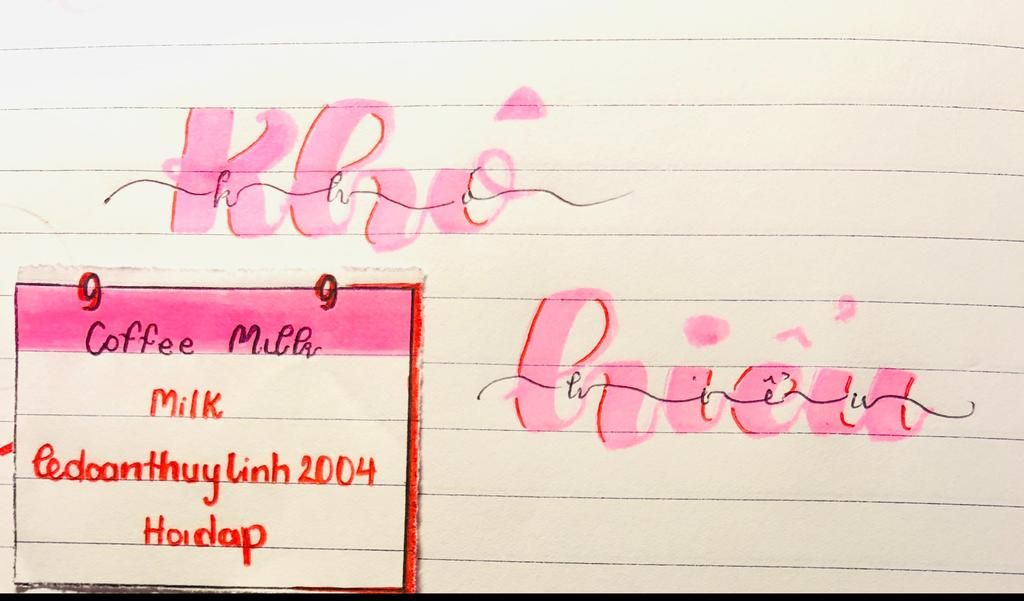 Khô
khô
hiểu
hiểu
Coffee Milk
Milk
ledoanthuylinh2004
Hoidap